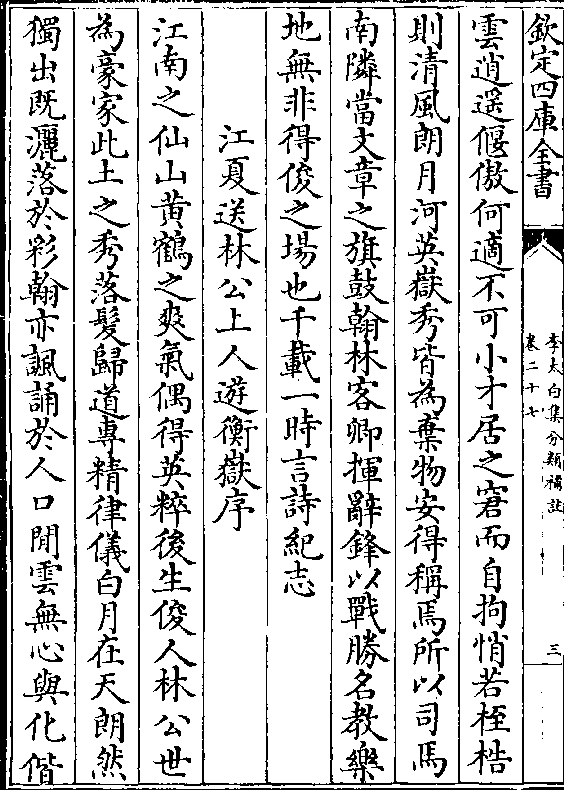 欽定四庫全書
李太白集分類補註
卷二十七
三
雲逍遥偃傲何適不可小才居之窘而自拘悄若桎梏
則清風朗月河英嶽秀皆為棄物安得稱焉所以司馬
南隣當文章之旗鼓翰林客卿揮辭鋒以戰勝名教樂
地無非得俊之場也千載一時言詩紀志
江夏送林公上人遊衡嶽序
江南之仙山黄鶴之爽氣偶得英粹後生俊人林公世
為豪家此土之秀落髮歸道專精律儀白月在天朗然
獨出既灑落於彩翰亦諷誦於人口閒雲無心與化偕